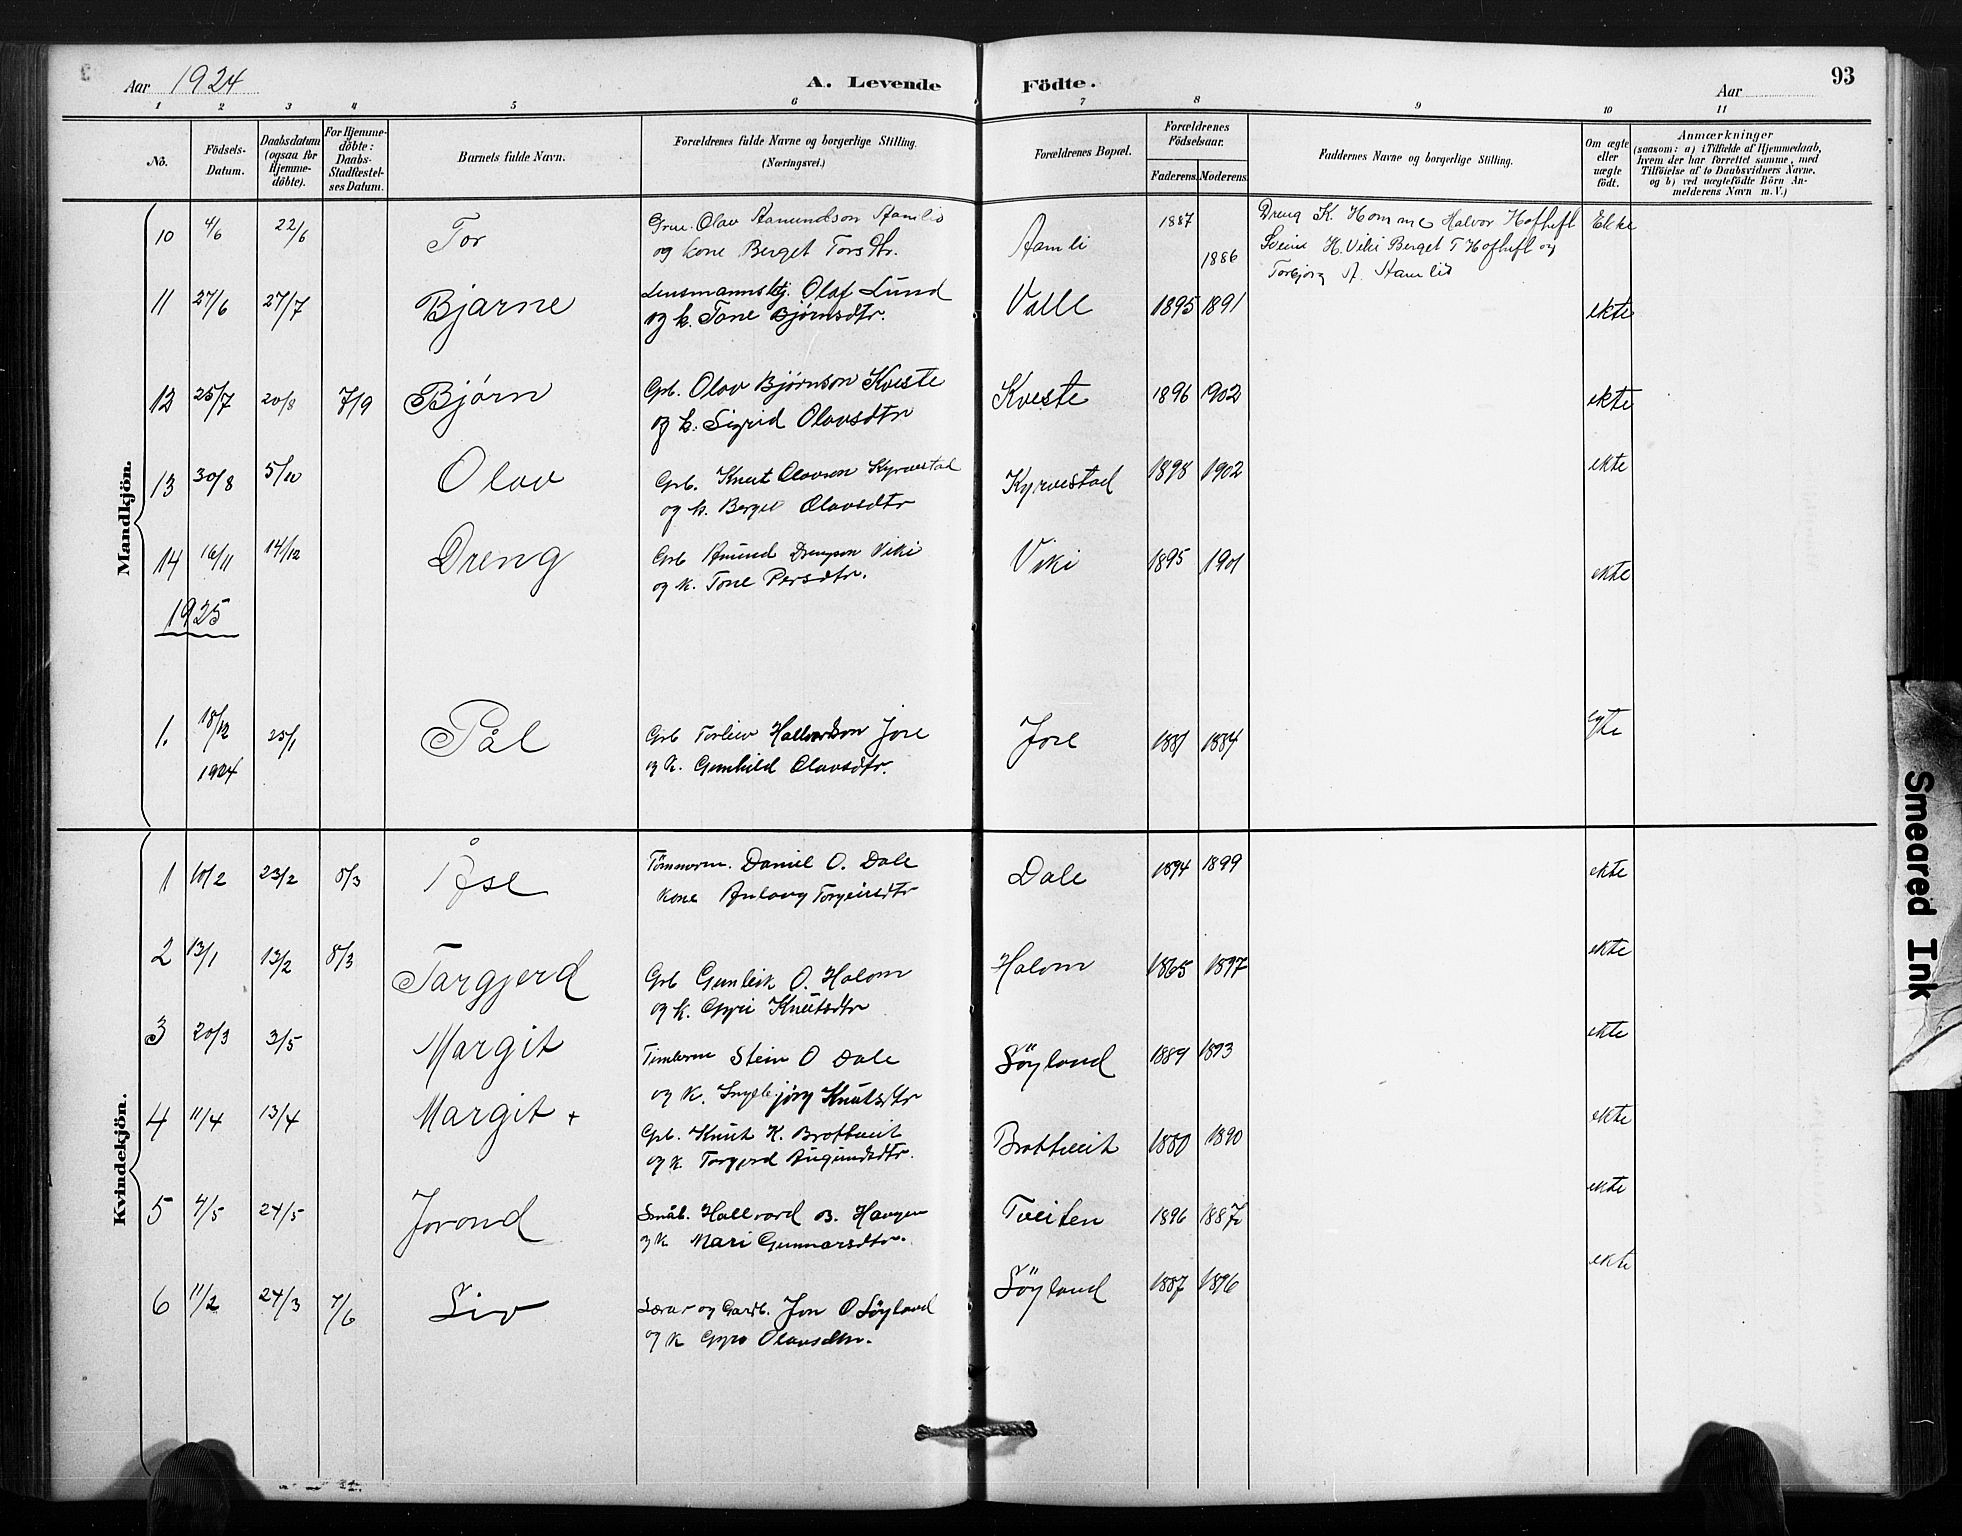 Aar 1924
A. Levende
Födte.
Aar
93
1 2 3 4 5 6 7 8 9 10 11
No.
Födsels-Datum.
Daabsdatum (ogsaa for Hjemme-döbte).
For Hjemme-döbte: Daabs-Stadfæstel-ses Datum.
Barnets fulde Navn.
Forældrenes fulde Navne og borgerlige Stilling. (Næringsvei.)
Forældrenes Bopæl.
Forældrenes Födselsaar.
Faderens. Moderens.
Faddernes Navne og borgerlig Stilling.
Om ægte eller uægte födt.
Anmærkninger
(saasom: a) i Tilfælde af Hjemmedaab,
hvem der har forrettet samme, med
Tilföielse af to Daabsvidners Navne,
og b) ved uægtefödte Börn An-
melderens Navn m. V.)
Mandkjön.
10 4/6 22/6 Tor Olav Aamundson Aamlid Aamli 1887 Dreng K. Homme Halvor Hoftuft Ekte
og kone Berget Torsdtr. 1886 Svein H. Viki Berget T Hoftuft og
Torbjørg A. Aamlid
11 27/6 27/7 Bjarne Lensmannsbtj. Olaf Lund Valle 1895 1891 ekte
og k. Tone Bjørnsdtr.
12 25/7 20/8 7/9 Bjørn Grb. Olav Bjørnson Kveste Kveste 1896 1902 ekte
og k. Sigrid Olavsdtr
13 30/8 5/10 Olav Grb. Knut Olavson Kyrvestad Kyrvestad 1898 1902 ekte
og k. Berget Olavsdtr
14 16/11 14/12 Dreng Grb Aamund Drengson Viki Viki 1895 1901 ekte
og k. Tone Persdtr.
1925
1. 18/12 1924 25/1 Pål Grb Torleiv Hallvardson Jore Jore 1881 1884 Egte
og k. Gunhild Olavsdtr.
Kvindekjön.
1 10/2 23/2 8/3 Åse Tömmerm. Daniel O. Dale Dale 1894 1899 ekte
kone Anlaug Torgeirsdtr
2 13/1 13/2 8/3 Targjerd Grb Gunleik O. Halom Halom 1865 1897 ekte
og k. Gyri Knutsdtr
3 20/3 3/5 Margit Stein O Dale Söyland 1889 1893 ekte
og k. Ingebjørg Knutsdtr
4 11/4 13/4 Margit + Grb. Knut K. Brottveit Brottveit 1880 1890 ekte
og k Torgjerd Augundsdtr.
5 4/5 24/5 Jorond Småb. Hallvard B. Haugen Tveiten 1896 1887 ekte
og k Mari Gunnarsdtr.
6 11/2 24/3 7/6 Liv Lærar og Gardb. Jon O Söyland Söyland 1887 1896 ekte
og k Gyro Olavsdtr.
Smeared Ink